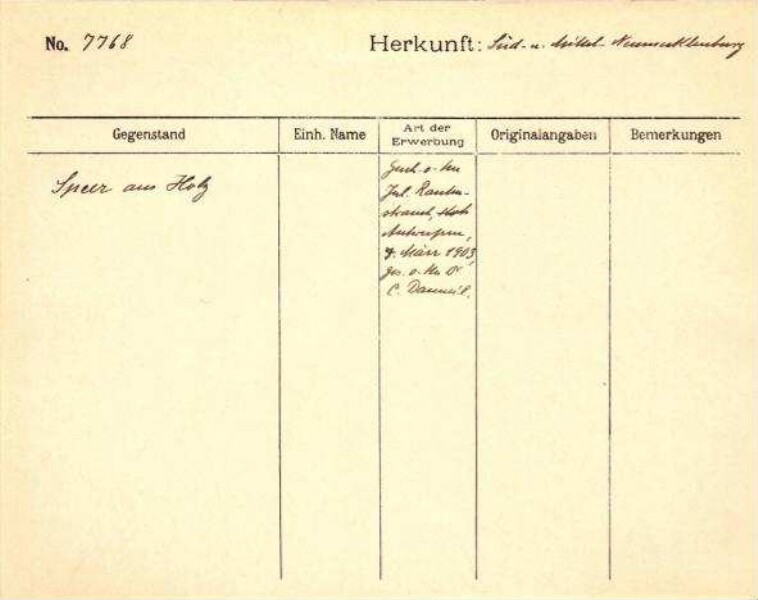 No. 7768 Herkunft: Süd- u. Mittel-Neumecklenburg
Gegenstand Einh. Name Art der Erwerbung Originalangaben Bemerkungen
Speer aus Holz
Gesch. v. Hn
Jul. Rauten-
strauch,
Antwerpen,
4. März 1903,
ges. v. Hn Dr
C. Danneil.